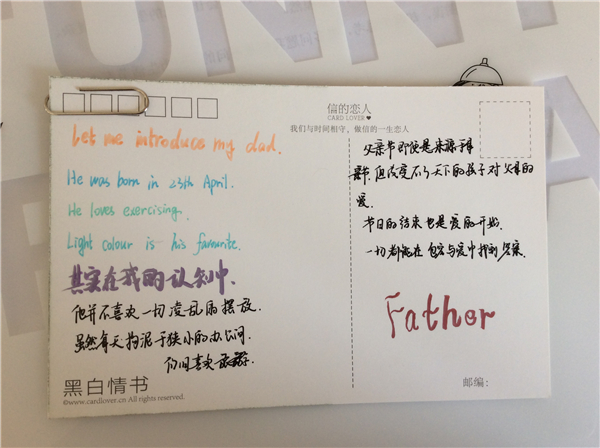 信的恋人
CARD LOVER
我们与时间相守，做信的一生恋人
Let me introduce my dad.
He was born in 25th April.
He loves exercising.
Light colour is his famurite.
其实在我的认知中，
他并不喜欢一切凌乱的摆放，
虽然每天拘泥于狭小的办公间，
仍旧喜欢
父亲节即使是来源于
但改变不了天下的孩子对父亲的
爱.
节日的结束也是爱的开始.
一切都能在包容与爱中找到答案.
Father
黑白情书
©www.cardlover.cn All rights reserved.
邮编：